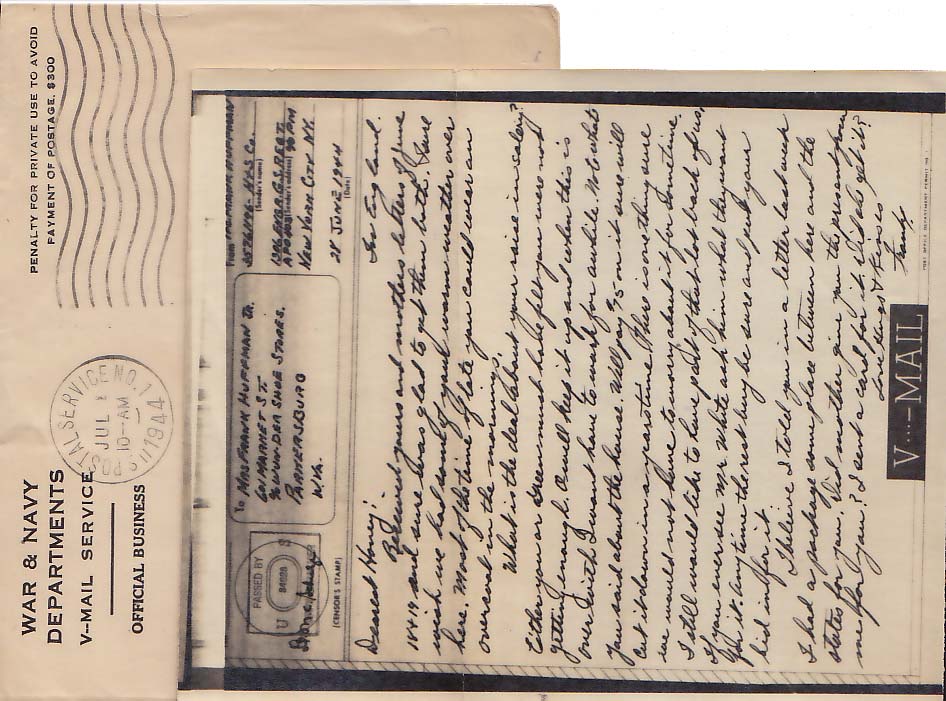 WAR & NAVY
DEPARTMENTS
V--MAIL SERVICE
OFFICIAL BUSINESS
U.S. POSTAL SERVICE NO. 1
JUL
10-AM
1944
PENALTY FOR PRIVATE USE TO AVOID
PAYMENT OF POSTAGE. $300
PASSED BY
U S
(CENSOR'S STAMP)
To MRS FRANK HUFFMAN JR.
601 MARKET ST.
% WUNDER SHOE STORES.
PARKERSBURG
W.VA.
From HUFFMAN
(Sender's name)
(Sender's address)
NEW YORK CITY N.Y.
28 JUNE 1944
(Date)
So. England.
Dearest Honey:
Received yours and mothers letters of June
18 & 19 and sure was glad to get them both. Sure
wish we had some of your warm weather over
here. Most of the time of late you could wear an
overcoat in the mornings.
What is the deal about your raise in salary?
Either you or Green must have felt you were not
getting enough. Awell keep it up and when this is
over with I wont have to work for awhile. Note what
you said about the house. Will say $75 on it sure will
cut it down in a years time. This is one thing sure
we would not have to worry about it for sometime.
I still would like to have part of that lot back of us.
If you ever see Mr. White ask him what they want
for it. Anytime they sell be sure and put your
bid in for it.
I believe I told you in a letter last week
I had a package someplace between here and the
states for you. Did mother give you the present from
me for you? I sent a card for it. Did she get it?
Love hugs & Kisses
Frank.
V···—MAIL
POST OFFICE DEPARTMENT PERMIT NO. 1